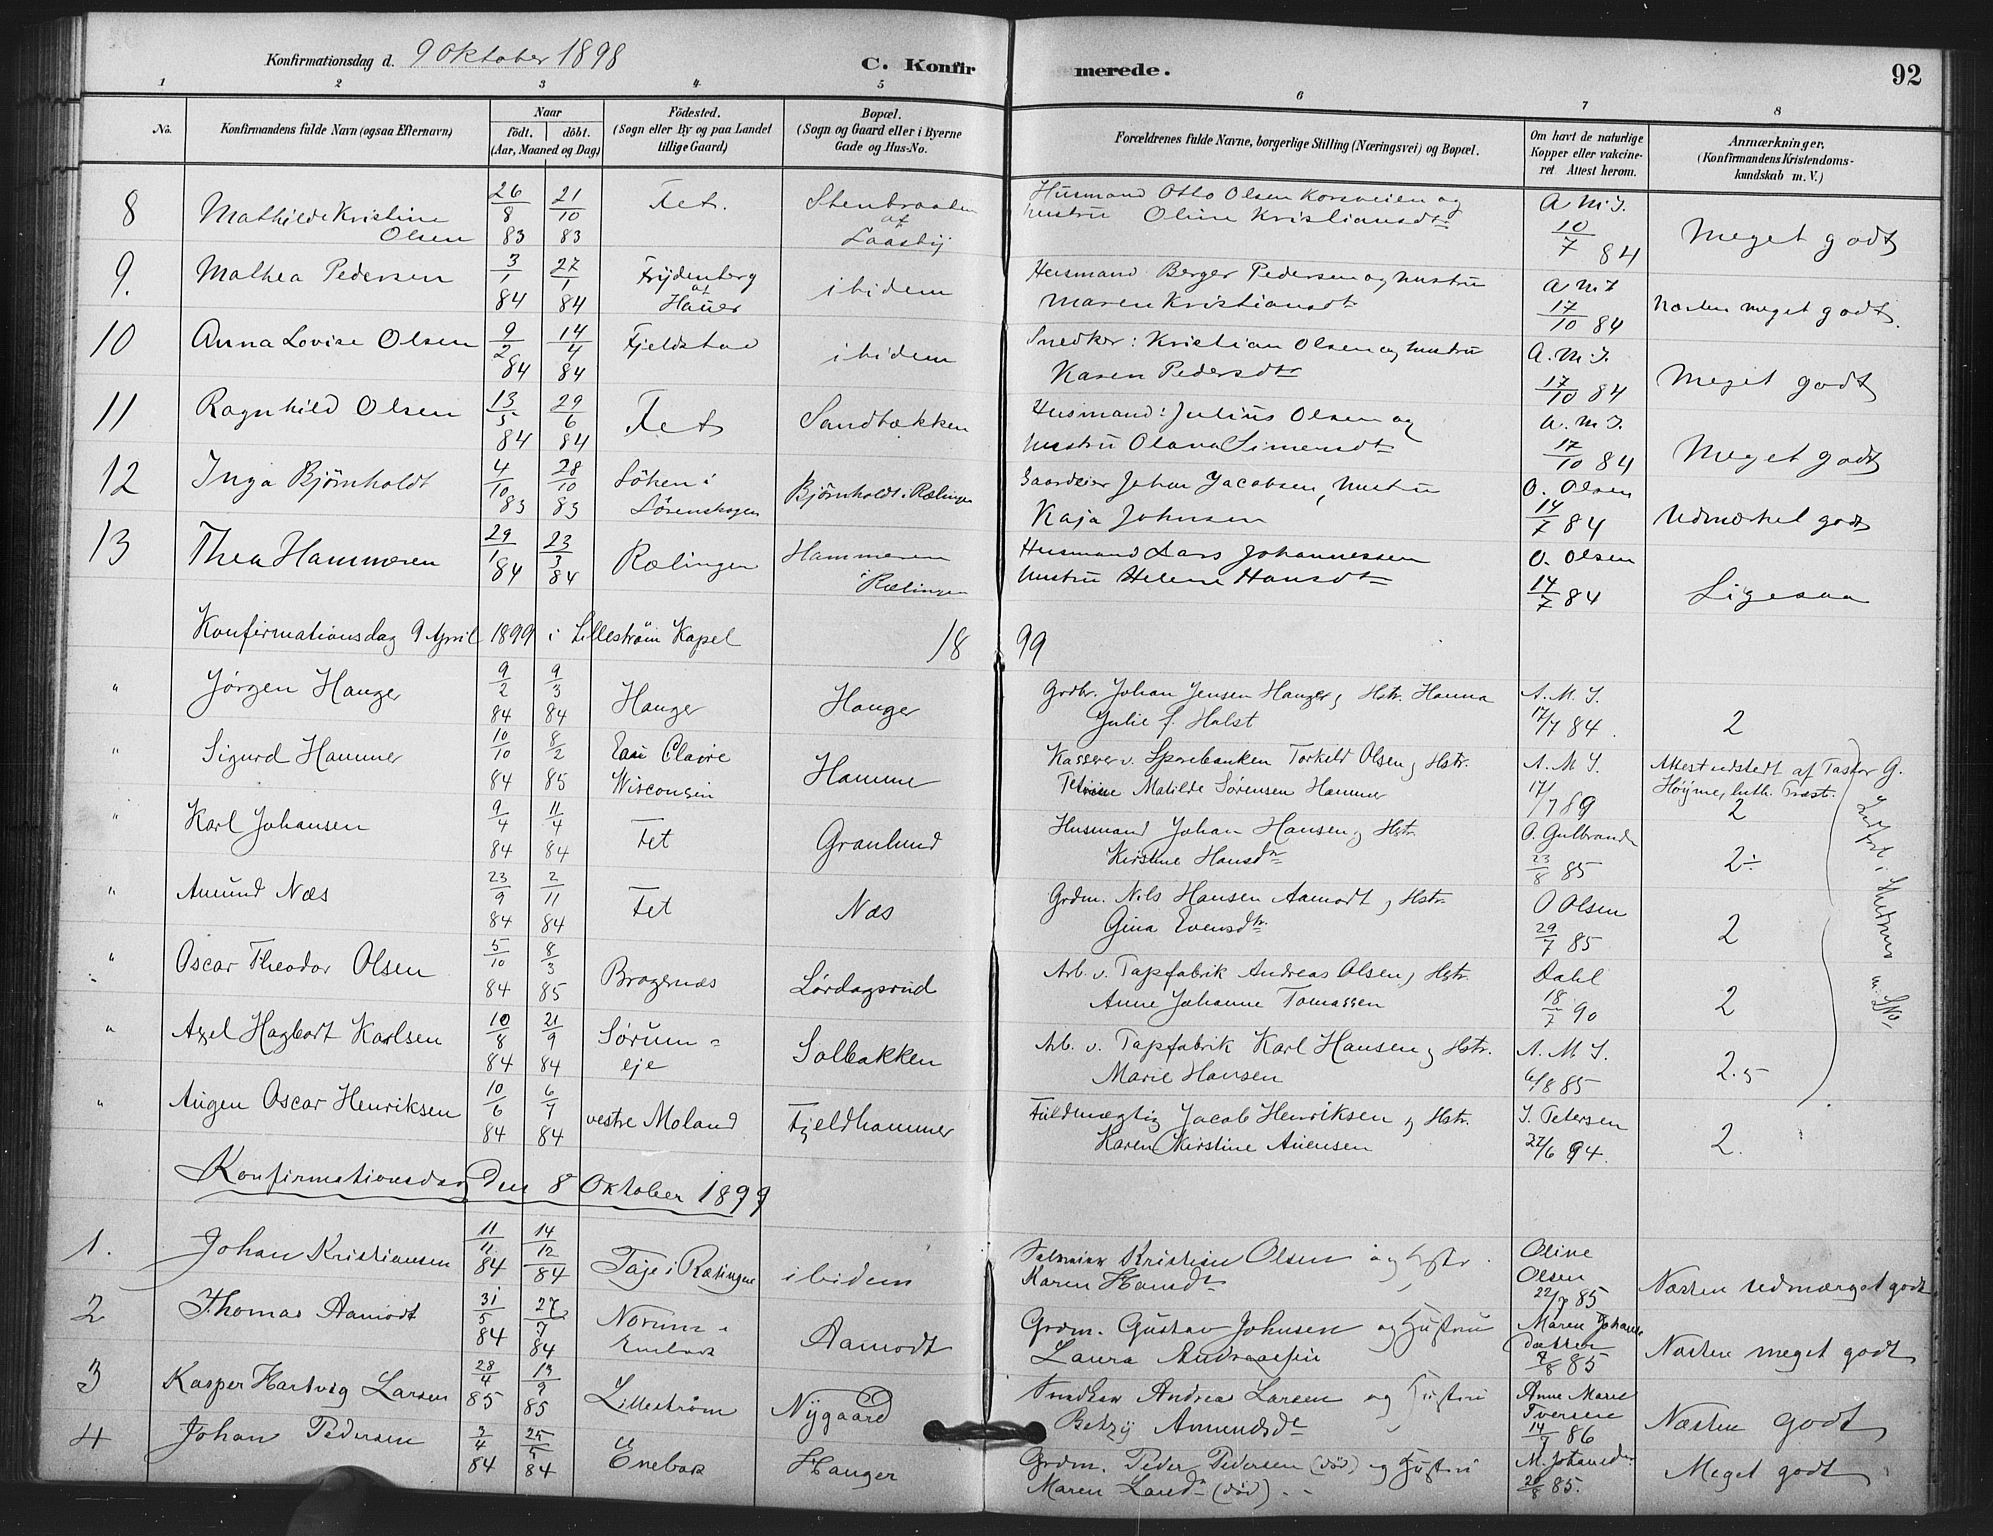 Konfirmationsdag d. 9 Oktober 1898
C. Konfir merede. 92
1 2 3 4 5 6 7 8
No. Konfirmandens fulde Navn (ogsaa Efternavn) Naar født. døbt. (Aar, Maaned og Dag) Fødested. (Sogn eller By og paa Landet tillige Gaard) Bopæl. (Sogn og Gaard eller i Byerne Gade og Hus-No. Forældrenes fulde Navne, borgerlige Stilling (Næringsvei) og Bopæl. Om havt de naturlige Kopper eller vakcineret Attest herom. Anmærkninger. (Konfirmandens Kristendomskundskab m. V.)
8 Mathilde Kristine Olsen 26/8 83 21/10 83 Fet. Stenbraaten af Laasby Husmand Otto Olsen Korsveien og Hustru Oline Kristiansdtr A M J. 10/7 84 Meget godt
9. Mathea Pedersen 3/1 84 27/1 84 Frydenberg af Hauer ibidem Husmand Berger Pedersen og Hustru Maren Kristiansdtr A M J 17/10 84 Næsten meget godt.
10 Anna Lovise Olsen 9/2 84 14/4 84 Fjeldstad ibidem Snedker: Kristian Olsen og Hustru Karen Pedersdtr A. M. J. 17/10 84 Meget godt
11 Ragnhild Olsen 13/5 84 29/6 84 Fet Sandbækken Husmand: Julius Olsen og Hustru Olava Simensdtr A. M J. 17/10 84 Meget godt
12 Inga Bjørnholdt 4/10 83 28/10 83 i Lørenskogen Bjørnholdt i Rælingen Gaardeier Johan Jacobsen, Hustru Kaja Johnsen O. Olsen 14/7 84 Udmærket godt
13 Thea Hammeren 29/1 84 23/3 84 Rælingen Hammeren i Rælingen Husmand Lars Johannessen Hustru Helene Hansdtr O. Olsen 14/7 84 Ligesaa
Konfirmationsdag 9 April 1899 i Lillestrøm Kapel 18 99
" Jørgen Hauger 9/2 84 9/3 84 Hauger Hauger Grdbr. Johan Jensen Hauger og Hstr. Hanna Julie f. Holst A. M. J. 17/7 84. 2
" Sigurd Hammer 10/10 84 8/2 85 Eau Claire Wisconsin Hammer Kasserer v. Sparebanken Torkeld Olsen og Hstr. Petrine Matilde Sørensen Hammer A. M J. 17/7 89 Attest udstedt af Pastor G. Høyme, luth. Præst. 2
" Karl Johansen 9/4 84 11/4 84 Fet Granlund Husmand Johan Hansen og Hstr. Kirstine Hansdtr O. Gulbrands 23/8 85 2÷
" Amund Næs 23/9 84 2/11 84 Fet Næs Grdm. Nils Hansen Aamodt og Hstr. Gina Evensdtr. O Olsen 29/7 85 2
" Oscar Theodor Olsen 5/10 84 8/3 85 Bragernæs Lørdagsrud Arb. v. Tapfabrik Andreas Olsen og Hstr. Anne Johanne Tomassen Dahl 18/7 90 2
" Axel Hagbart Karlsen 10/8 84 21/9 84 Sørumeje Solbakken Arb. v. Tapfabrik Karl Hansen og Hstr. Marie Hansen A. M J. 6/8 85 2.5
" Augen Oscar Henriksen 10/6 84 6/7 84 vestre Moland Fjeldhammer Fuldmægtig Jacob Henriksen og Hstr. Karen Kirstine Auensen J. Petersen 22/6 94. 2.
Konfirmationsdag Den 8 Oktober 1899
1. Johan Kristiansen 11/11 84 14/12 84 Taje i Rælingen ibidem Kristian Olsen og Karen Hansdtr Oline Olsen 22/7 85 Næsten udmærget godt
2 Thomas Aamodt 31/5 84 27/7 84 Enebak Aamodt Grdm. Gustav Johnsen og Hustru Laura Andreassen Maren Johansdatter 8/8 85 Næsten meget godt
3 Kasper Hartvig Larsen 28/4 85 13/9 85 Lillestrøm Nygaard Snedker Andrea Larsen og Hustru Betzy Amundsdtr Anne Marie Iversen 14/7 86 Næsten godt
4 Johan Pedersen 3/4 84 25/5 84 Enebak Hauger Grdm. Peder Pedersen (død) og Hustru Maren Larsdtr (død) M. Johansdtr 20/8 85. Meget godt